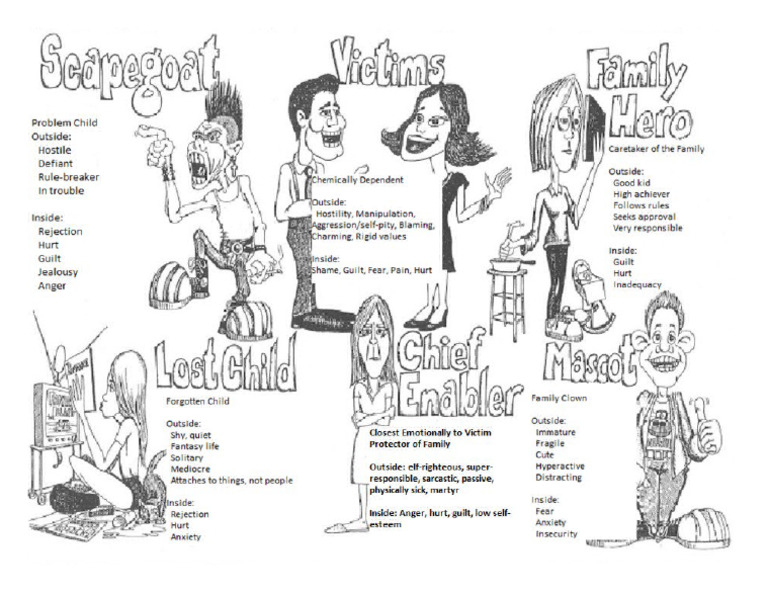 Scapegoat
Problem Child
Outside:
Hostile
Defiant
Rule-breaker
In trouble
Inside:
Rejection
Hurt
Guilt
Jealousy
Anger
Victims
Chemically Dependent
Outside:
Hostility, Manipulation,
Aggression/self-pity, Blaming,
Charming, Rigid values
Inside:
Shame, Guilt, Fear, Pain, Hurt
Family
Hero
Caretaker of the Family
Outside:
Good kid
High achiever
Follows rules
Seeks approval
Very responsible
Inside:
Guilt
Hurt
Inadequacy
Lost Child
Forgotten Child
Outside:
Shy, quiet
Fantasy life
Solitary
Mediocre
Attaches to things, not people
Inside:
Rejection
Hurt
Anxiety
Chief
Enabler
Closest Emotionally to Victim
Protector of Family
Outside: elf-righteous, super-
responsible, sarcastic, passive,
physically sick, martyr
Inside: Anger, hurt, guilt, low self-
esteem
Mascot
Family Clown
Outside:
Immature
Fragile
Cute
Hyperactive
Distracting
Inside:
Fear
Anxiety
Insecurity